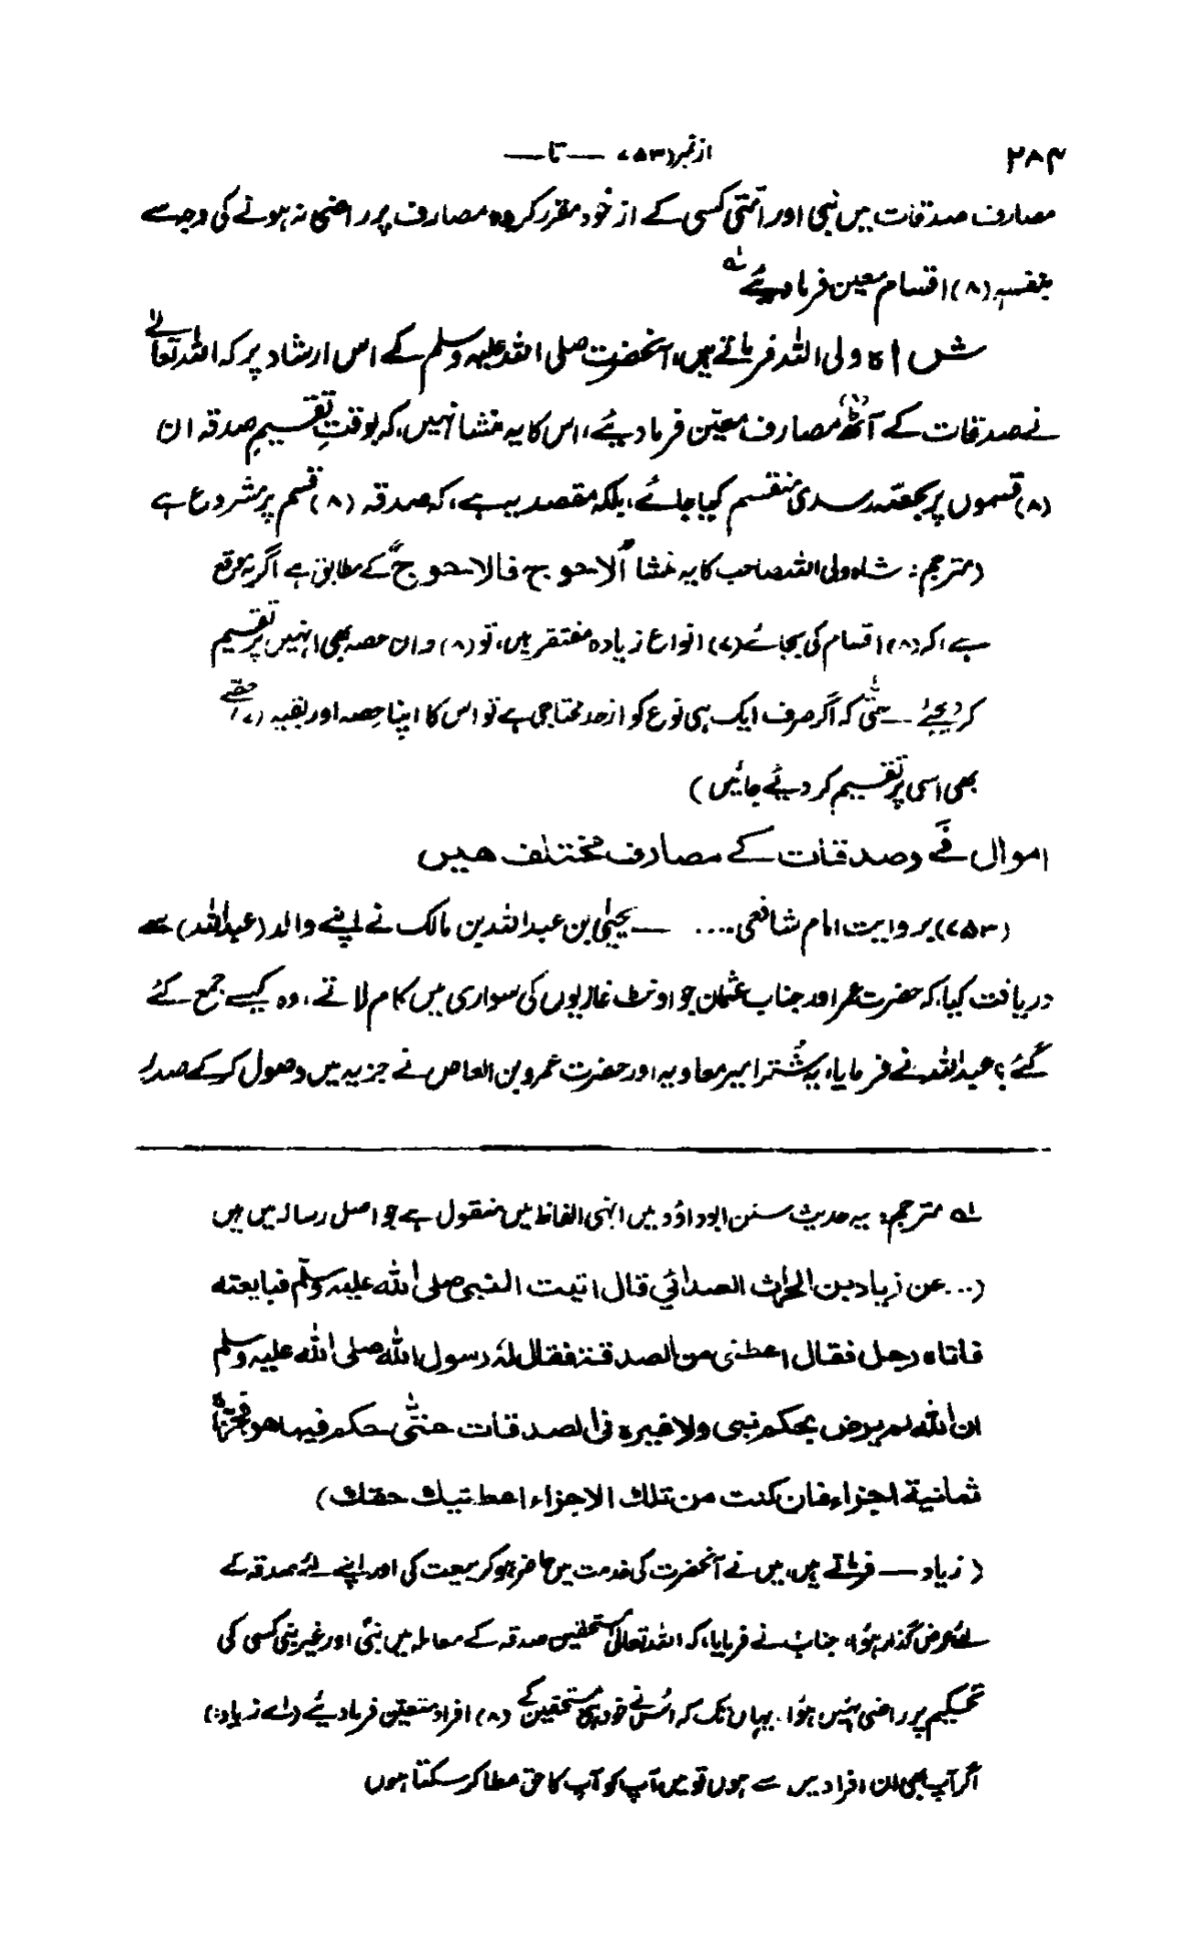 ۲۸۴
از نمبر (۷۵۳) — تا —
مصارف صدقات میں نبی اور امتی کسی کے از خود مقرر کردہ مصارف پر راضی نہ ہونے کی وجہ سے
بنفسہٖ (۸) اقسام معین فرما دیئے لہ
شاہ ولی اللہ فرماتے ہیں، آنحضرت صلی اللہ علیہ وسلم کے اس ارشاد پر کہ اللہ تعالےٰ
نے صدقات کے آٹھ (۸) مصارف معیّن فرما دیئے، اس کا یہ منشا نہیں، کہ بوقتِ تقسیمِ صدقہ ان
(۸) قسموں پر بحصّہ رسدی منقسم کیا جائے، بلکہ مقصد یہ ہے، کہ صدقہ (۸) قسم پر مشروع ہے
(مترجم: شاہ ولی اللہ صاحب کا یہ منشا "الاحوج فالاحوج" کے مطابق ہے اگر یہ موقع
ہے، کہ (۸) اقسام کی بجائے (۷) انواع زیادہ مفتقر ہیں، تو (۸) واں حصہ بھی انہیں پر تقسیم
کر دیجئے ــ حتّٰی کہ اگر صرف ایک ہی نوع کو ازحد محتاجی ہے تو اس کا اپنا حصہ اور بقیہ (۷) حصّے
بھی اسی پر تقسیم کر دیئے جائیں)
اموال فَے وصدقات کے مصارف مختلف ہیں
(۷۵۳) بروایت امام شافعی .... — یحییٰ بن عبداللہ بن مالک نے اپنے والد (عبداللہ) سے
دریافت کیا، کہ حضرت عمر اور جناب عثمان جو اونٹ غازیوں کی سواری میں کام لاتے، وہ کیسے جمع کئے
گئے؟ عبداللہ نے فرمایا، یہ شُتر امیر معاویہ اور حضرت عمرو بن العاص نے جزیہ میں وصول کر کے صدارَ
لہ مترجم: یہ حدیث سنن ابوداؤد میں انہی الفاظ میں منقول ہے جو اصل رسالہ میں ہیں
(... عن زیاد بن الحرث الصدائی قال اتیت النبی صلی اللہ علیہ وسلّم فبایعتہ
فاتاہ رجل فقال اعطنی من الصدقۃ فقال لہ رسول اللہ صلی اللہ علیہ وسلم
ان اللہ لم یرض بحکم نبی ولا غیرہ فی الصدقات حتّٰی حکم فیہا ھو فجزّاھا
ثمانیۃ اجزاء فان کنت من تلک الاجزاء اعطیتک حقک)
(زیاد — فرماتے ہیں، میں نے آنحضرت کی خدمت میں حاضر ہو کر بیعت کی اور اپنے لئے صدقہ کے
لئے عرض گذار ہؤا، جنابؐ نے فرمایا، کہ اللہ تعالیٰ مستحقین صدقہ کے معاملہ میں نبی اور غیر نبی کسی کی
تحکیم پر راضی نہیں ہؤا. یہاں تک کہ اُس نے خود ہی مستحقین کے (۸) افراد متعیّن فرما دیئے (اے زیاد:)
اگر آپ بھی ان افراد میں سے ہوں تو میں آپ کو آپ کا حق عطا کر سکتا ہوں